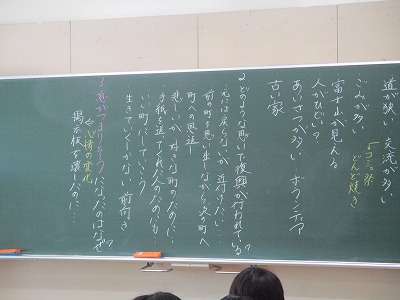 道が狭い 交流が多い
ごみが多い
コミュ祭
どんど焼き
富士山が見える
人がひどい?
あいさつが多い ボランティア
古い家
どのような思いで復興が行われている?
元には戻らないが近付けたい…
前の町を思い出しながら次の町へ
町への恩返し
悲しいが、好きな町のために!
手紙を送ってくれた人のためにも
いい町にしていこう
生きていくしかない 前向き
となったのはなぜ?
心情の変化
掲示板を壊したのに…